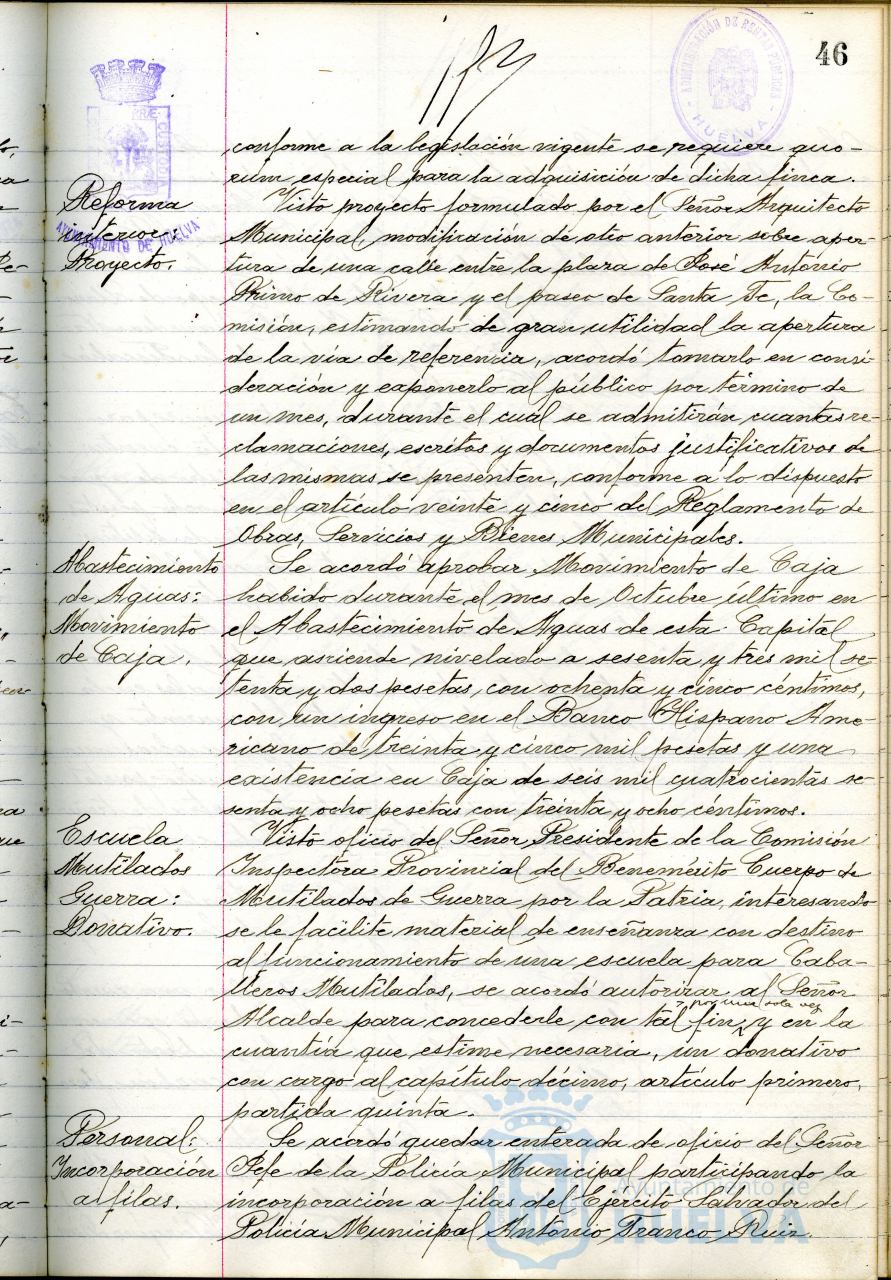 46
ADMINISTRACIÓN DE RENTAS PÚBLICAS
HUELVA
AYUNTAMIENTO DE HUELVA
conforme a la legislación vigente se requiere quo-
rum especial para la adquisición de dicha finca.
Reforma
interior:
Proyecto.
Visto proyecto formulado por el Señor Arquitecto
Municipal, modificación de otro anterior sobre aper-
tura de una calle entre la plaza de José Antonio
Primo de Rivera y el paseo de Santa Fe, la Co-
misión, estimando de gran utilidad la apertura
de la vía de referencia, acordó tomarlo en consi-
deración y exponerlo al público por término de
un mes, durante el cual se admitirán cuantas re-
clamaciones, escritos y documentos justificativos de
las mismas se presenten, conforme a lo dispuesto
en el artículo veinte y cinco del Reglamento de
Obras, Servicios y Bienes Municipales.
Abastecimiento
de Aguas:
Movimiento
de Caja.
Se acordó aprobar Movimiento de Caja
habido durante el mes de Octubre último en
el Abastecimiento de Aguas de esta Capital
que asciende nivelado a sesenta y tres mil se-
tenta y dos pesetas, con ochenta y cinco céntimos,
con un ingreso en el Banco Hispano Ame-
ricano de treinta y cinco mil pesetas y una
existencia en Caja de seis mil cuatrocientas se-
senta y ocho pesetas con treinta y ocho céntimos.
Escuela
Mutilados
Guerra:
Donativo.
Visto oficio del Señor Presidente de la Comisión
Inspectora Provincial del Benemérito Cuerpo de
Mutilados de Guerra por la Patria, interesando
se le facilite material de enseñanza con destino
al funcionamiento de una escuela para Caba-
lleros Mutilados, se acordó autorizar al Señor
Alcalde para concederle con tal fin, por una sola vez y en la
cuantía que estime necesaria, un donativo
con cargo al capítulo décimo, artículo primero,
partida quinta.
Personal:
Incorporación
a filas.
Se acordó quedar enterada de oficio del Señor
Jefe de la Policía Municipal participando la
incorporación a filas del Ejército Salvador del
Policía Municipal Antonio Franco Ruiz.
Ayuntamiento de
HUELVA